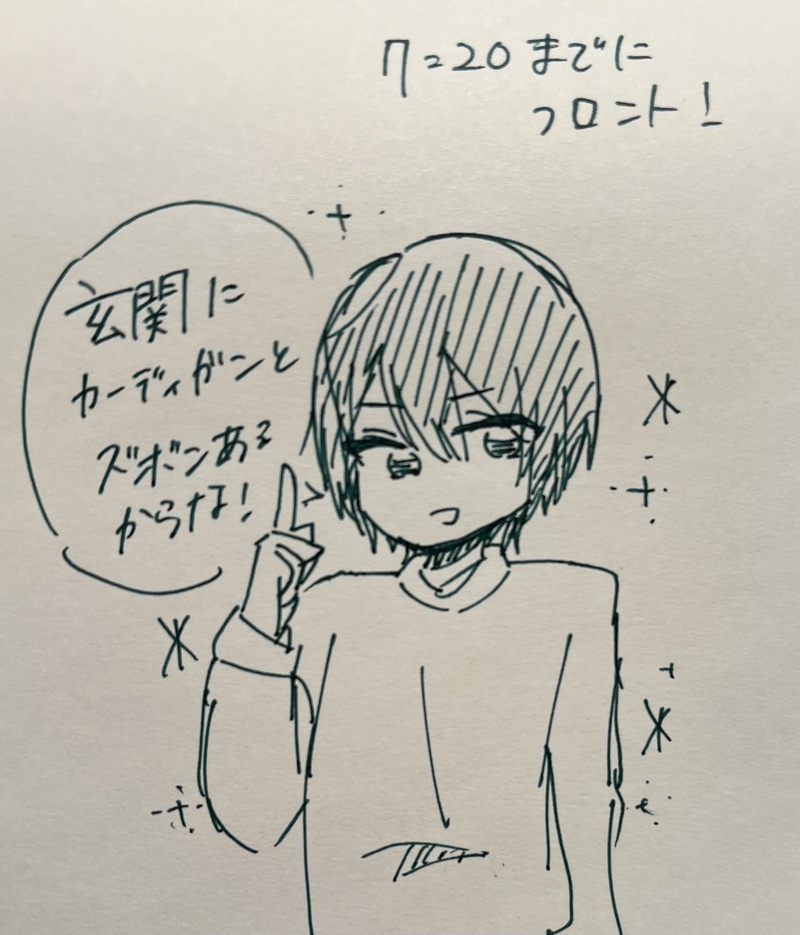 7:20までに
フロント!
玄関に
カーディガンと
ズボンある
からな!